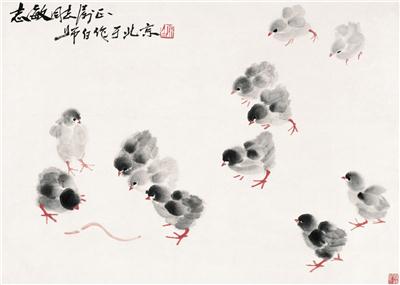 志敏同志属正
师白作于北京